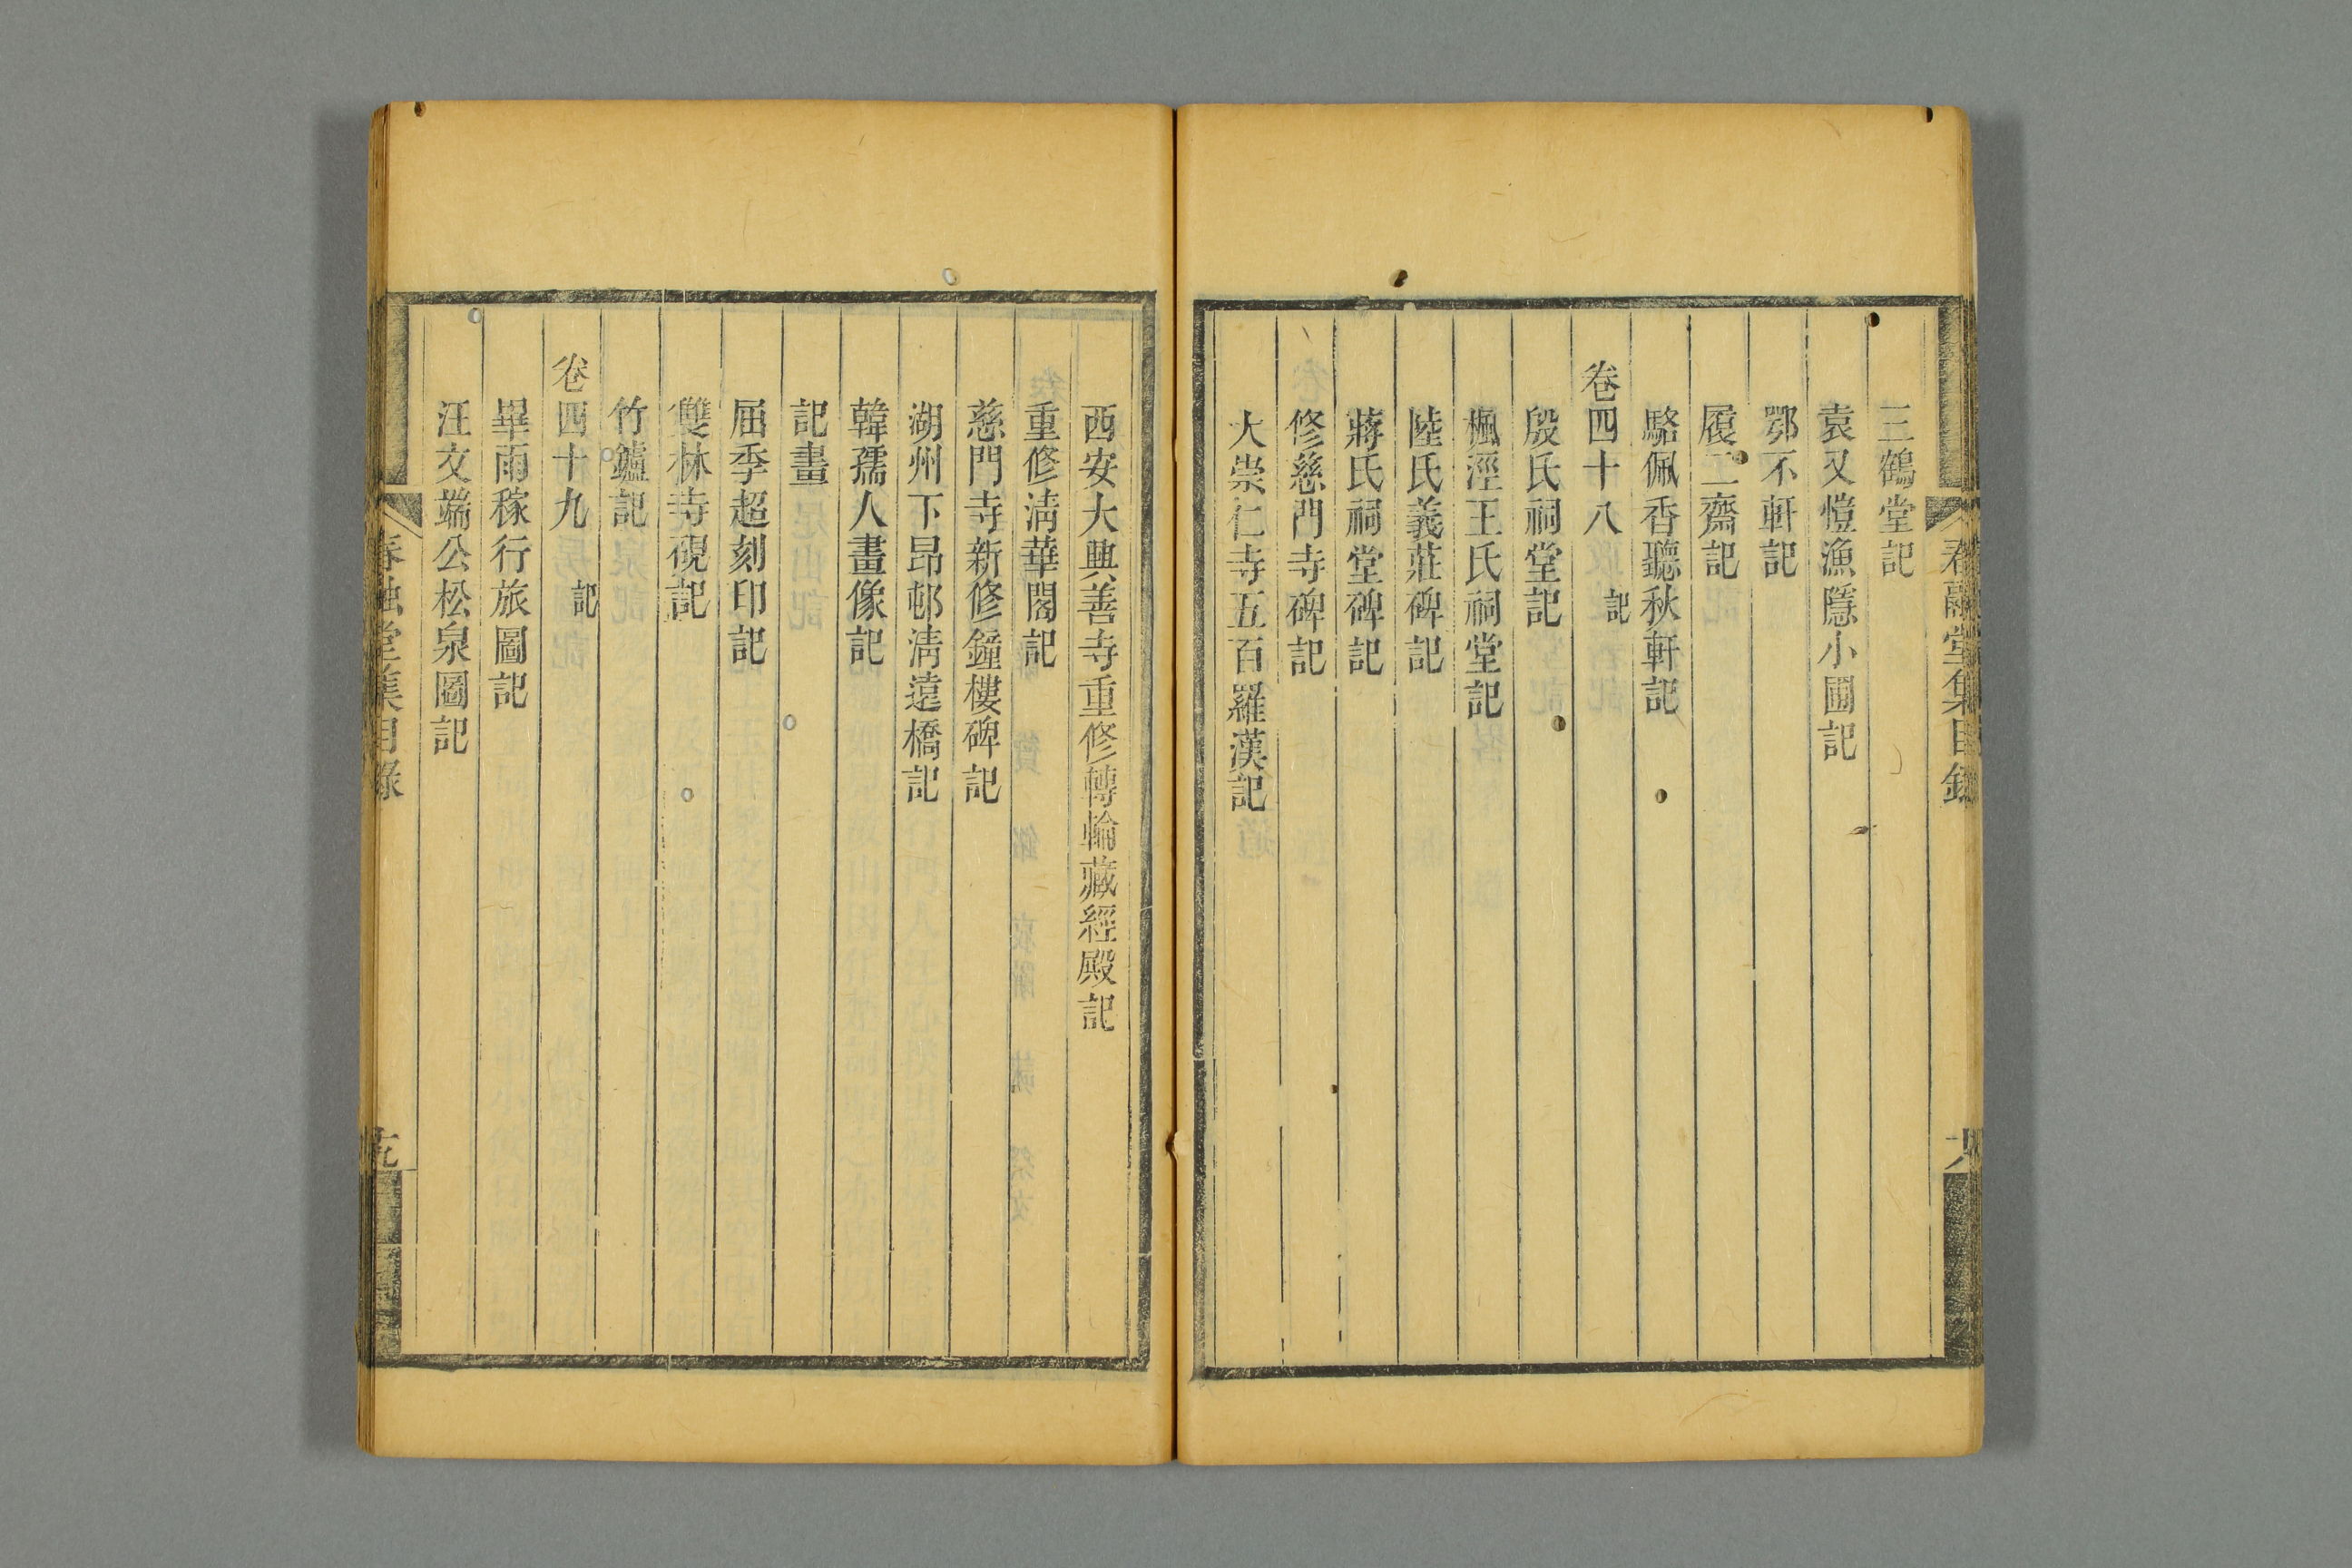 春融堂集目錄
三鶴堂記
袁又愷漁隱小圃記
鄂不軒記
履二齋記
駱佩香聽秋軒記
卷四十八 記
殷氏祠堂記
楓涇王氏祠堂記
陸氏義莊碑記
蔣氏祠堂碑記
修慈門寺碑記
大崇仁寺五百羅漢記
西安大興善寺重修轉輪藏經殿記
重修清華閣記
慈門寺新修鐘樓碑記
湖州下昂邨清遠橋記
韓孺人畫像記
記畫
屈季超刻印記
雙林寺硯記
竹鑪記
卷四十九 記
畢雨稼行旅圖記
汪文端公松泉圖記
春融堂集目錄